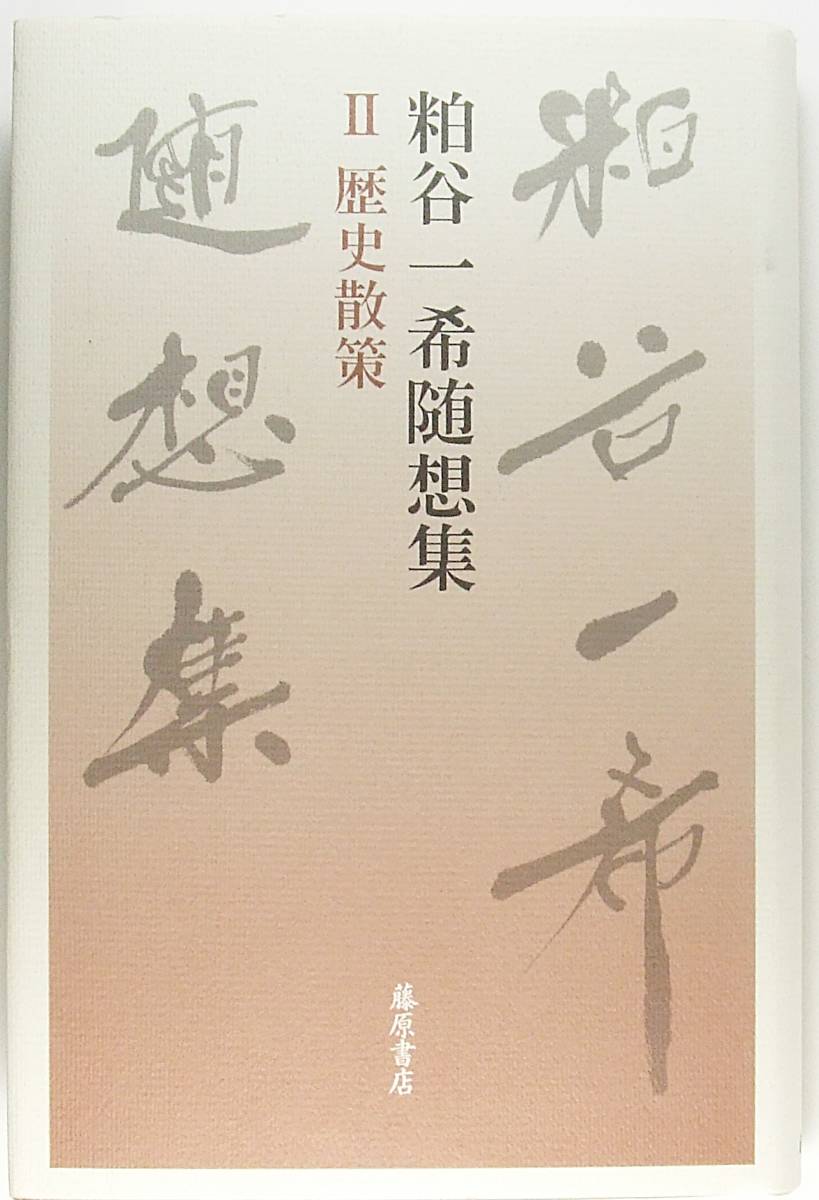 粕谷一希
粕谷一希随想集
Ⅱ 歴史散策
随想集
藤原書店